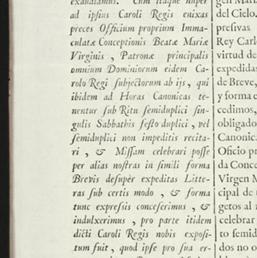 exaudiamus. Cum itaque nuper
ad ipsius Caroli Regis enixas
preces Officium proprium Imma-
culatæ Conceptionis Beatæ Mariæ
Virginis, Patronæ principalis
omnium Dominiorum eidem Ca-
rolo Regi subjectorum ab ijs, qui
ibidem ad Horas Canonicas te-
nentur sub Ritu semiduplici sin-
gulis Sabbathis festo duplici, vel
semiduplici non impeditis recita-
ri, & Missam celebrari posse
per alias nostras in simili forma
Brevis desupèr expeditas Litte-
ras sub certis modo, & forma
tunc expressis conceserimus, &
indulxerimus, pro parte itidem
dicti Caroli Regis nobis exposi-
tum fuit, quod ipse pro sua er-
gen Maria
del Cielo,
presivas
Rey Carlo
virtud de
expedidas
de Breve,
y forma e
cedimos,
obligado
Canonic
Oficio pr
da Conce
Virgen M
cipal de t
getos al
celebrar
to semid
dos no o